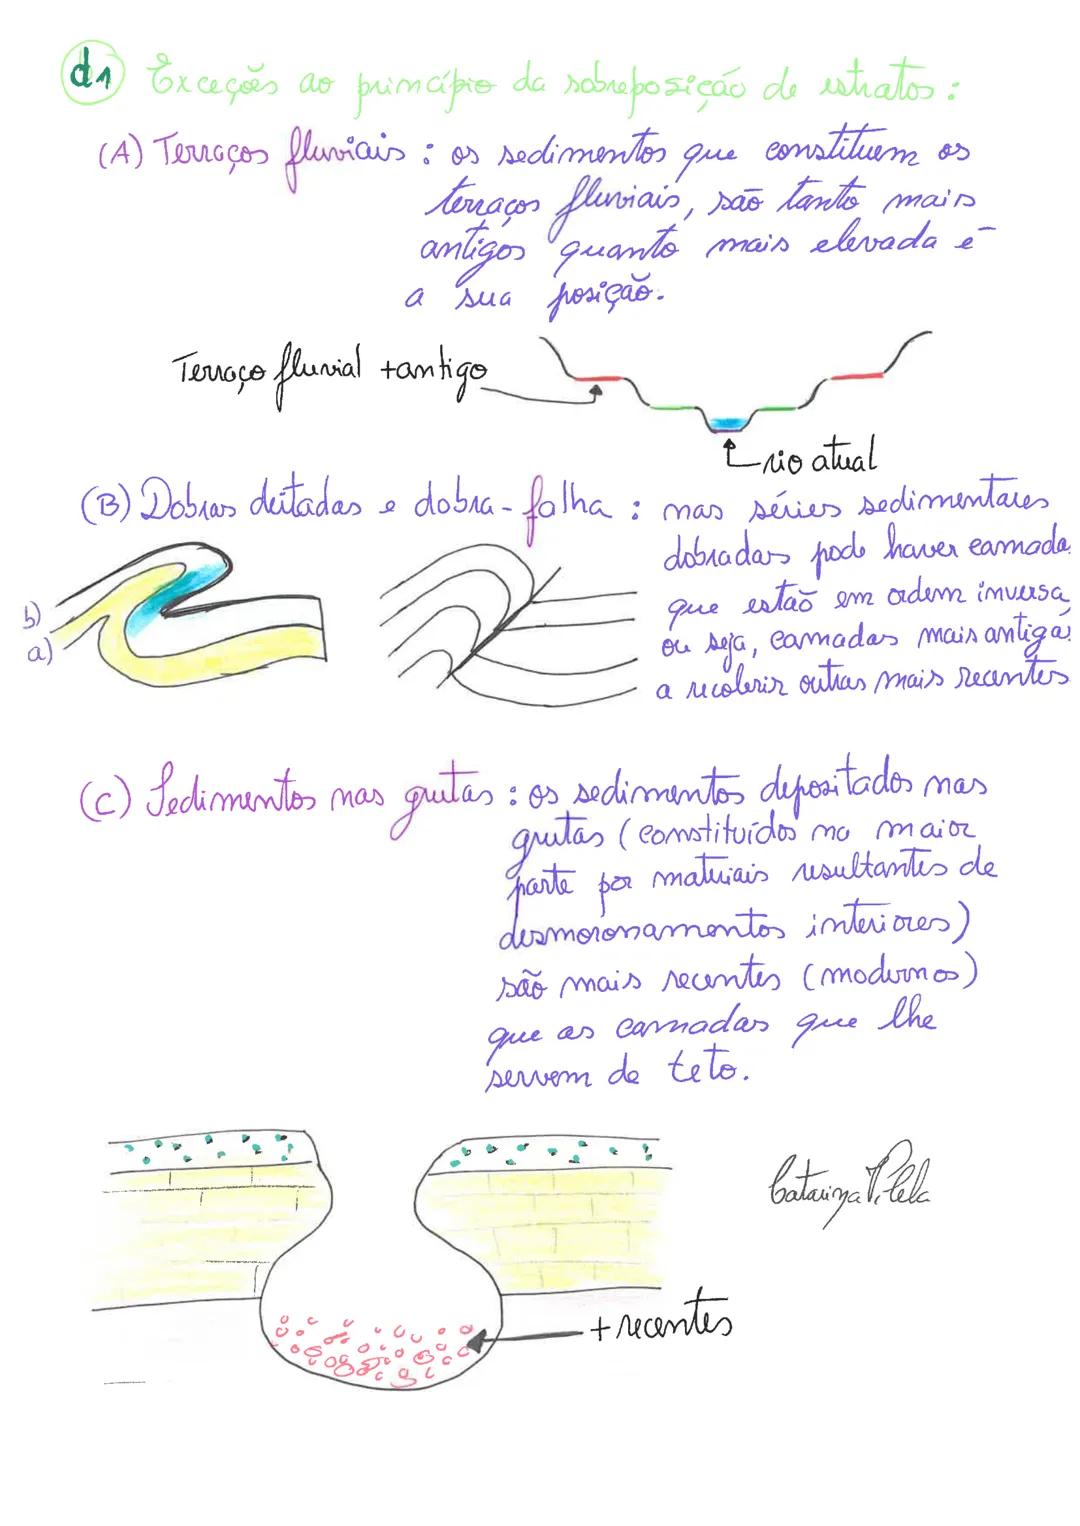 d1 Exceções ao princípio da sobreposição de estratos :
(A) Terraços fluviais : os sedimentos que constituem os
terraços fluviais, são tanto mais
antigos quanto mais elevada é
a sua posição.
Terraço fluvial +antigo
rio atual
(B) Dobras deitadas e dobra-falha : nas séries sedimentares
dobradas pode haver camada
que estão em ordem inversa,
ou seja, camadas mais antigas
a recobrir outras mais recentes
b)
a)
(C) Sedimentos nas grutas : os sedimentos depositados nas
grutas (constituídos na maior
parte por materiais resultantes de
desmoronamentos interiores)
são mais recentes (modernos)
que as camadas que lhe
servem de teto.
Catarina Vilela
+ recentes